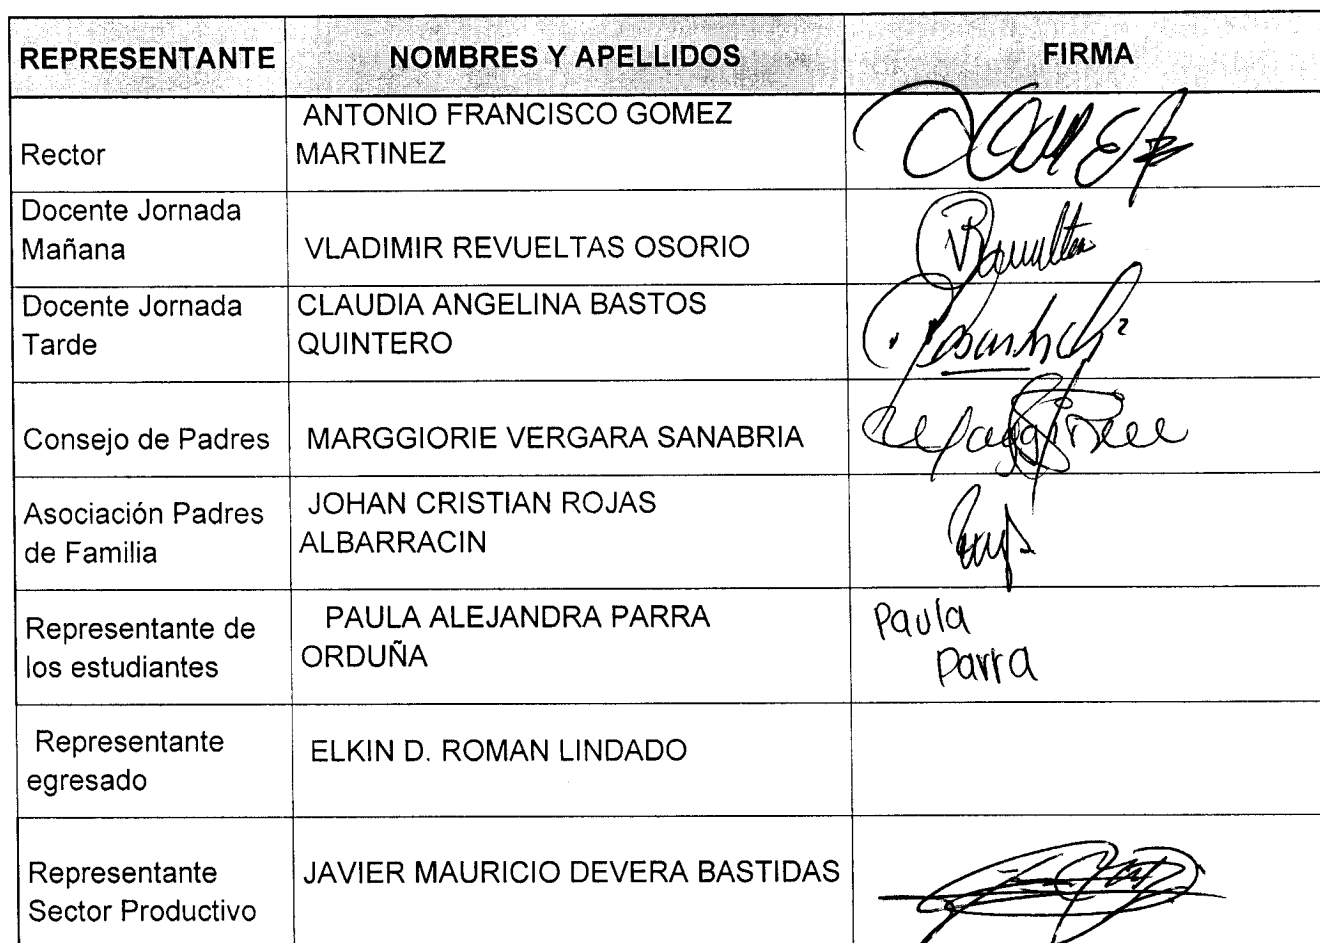 REPRESENTANTE NOMBRES Y APELLIDOS FIRMA
Rector
ANTONIO FRANCISCO GOMEZ
MARTINEZ
Docente Jornada
Mañana
VLADIMIR REVUELTAS OSORIO
Docente Jornada
Tarde
CLAUDIA ANGELINA BASTOS
QUINTERO
Consejo de Padres
MARGGIORIE VERGARA SANABRIA
Asociación Padres
de Familia
JOHAN CRISTIAN ROJAS
ALBARRACIN
Representante de
los estudiantes
PAULA ALEJANDRA PARRA
ORDUÑA
Paula
Parra
Representante
egresado
ELKIN D. ROMAN LINDADO
Representante
Sector Productivo
JAVIER MAURICIO DEVERA BASTIDAS